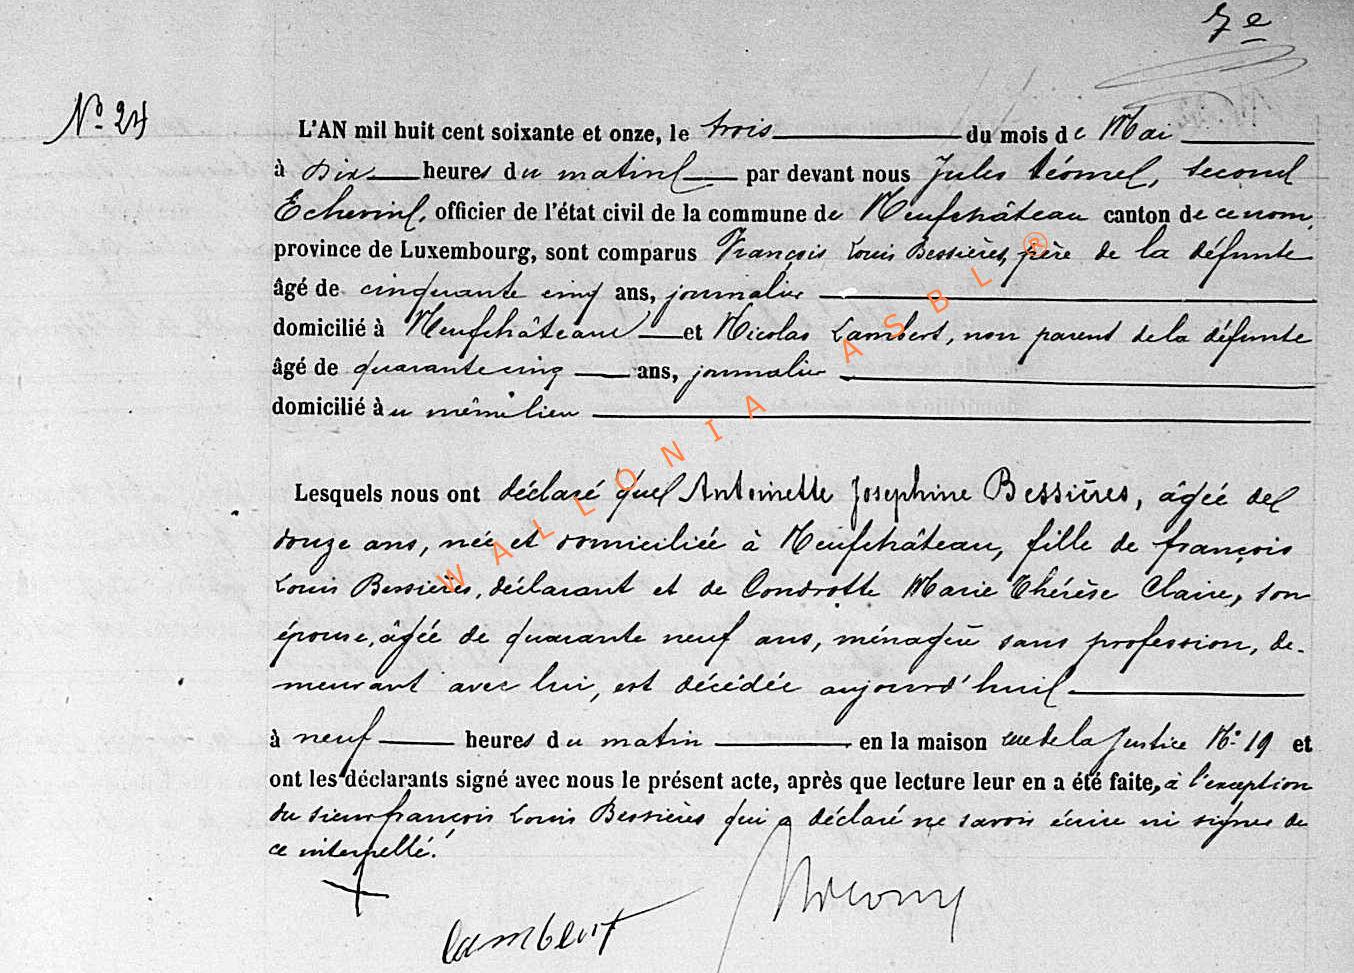 7e
No 24
L'AN mil huit cent soixante et onze, le trois du mois de Mai
à Dix heures du matin par devant nous Jules second
Echevin, officier de l'état civil de la commune de Neufchâteau canton de ce nom,
province de Luxembourg, sont comparus François Louis Bessières, père de la défunte
âgé de cinquante cinq ans, journalier
domicilié à Neufchâteau et Nicolas Lambert, non parent de la défunte
âgé de quarante cinq ans, journalier
domicilié au même lieu
Lesquels nous ont déclaré que Antoinette Josephine Bessières, âgée de
douze ans, née et domiciliée à Neufchâteau, fille de françois
Louis Bessières, déclarant et de Condrotte Marie Thérèse Claire, son
épouse, âgée de quarante neuf ans, ménagère sans profession, de-
meurant avec lui, est décédée aujourd'hui
à neuf heures du matin en la maison rue de la Justice No 19 et
ont les déclarants signé avec nous le présent acte, après que lecture leur en a été faite, à l'exception
du sieur françois Louis Bessières qui a déclaré ne savoir écrire ni signer de
ce interpellé.
Lambert
WALLONIA ASBL ®